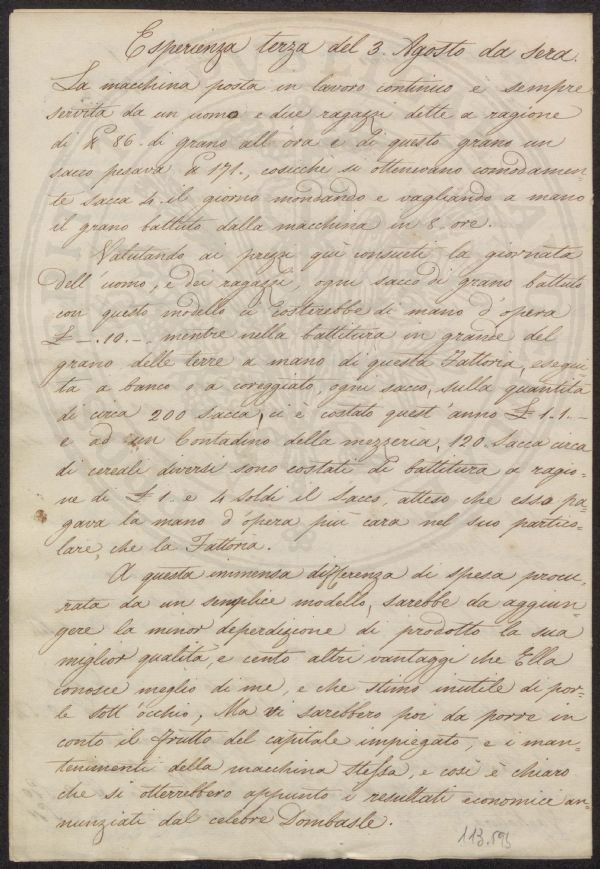 Esperienza terza del 3. Agosto da sera.
La macchina posta in lavoro continuo e sempre
servita da un uomo e due ragazzi dette a ragione
di ℔ 86. di grano all'ora e di questo grano un
sacco pesava ℔ 171., cosicchè si ottenevano comodamen=
te sacca 4. il giorno mondando e vagliando a mano
il grano battuto dalla macchina in 8. ore.
Valutando ai prezzi quì consueti la giornata
dell'uomo, e dei ragazzi, ogni sacco di grano battuto
con questo modello ci costerebbe di mano d'opera
£ —.10.— mentre nella battitura in grande del
grano delle terre a mano di questa Fattoria, esegui=
ta a banco o a coreggiato, ogni sacco, sulla quantità
di circa 200 sacca, ci è costato quest'anno £ 1.1.—
e ad un Contadino della mezzeria, 120. Sacca circa
di cereali diversi sono costati di battitura a ragio=
ne di £ 1. e 4 soldi il Sacco, atteso che esso pa=
gava la mano d'opera più cara nel suo partico=
lare, che la Fattoria.
A questa immensa differenza di spesa procu=
rata da un semplice modello, sarebbe da aggiun=
gere la minor deperdizione di prodotto la sua
miglior qualità, e cento altri vantaggi che Ella
conosce meglio di me, e che stimo inutile di por=
le sott'occhio, Ma vi sarebbero poi da porre in
conto il frutto del capitale impiegato, e i man=
tenimenti della macchina stessa, e così è chiaro
che si otterrebbero appunto i resultati economici an=
nunziati dal celebre Dombasle.